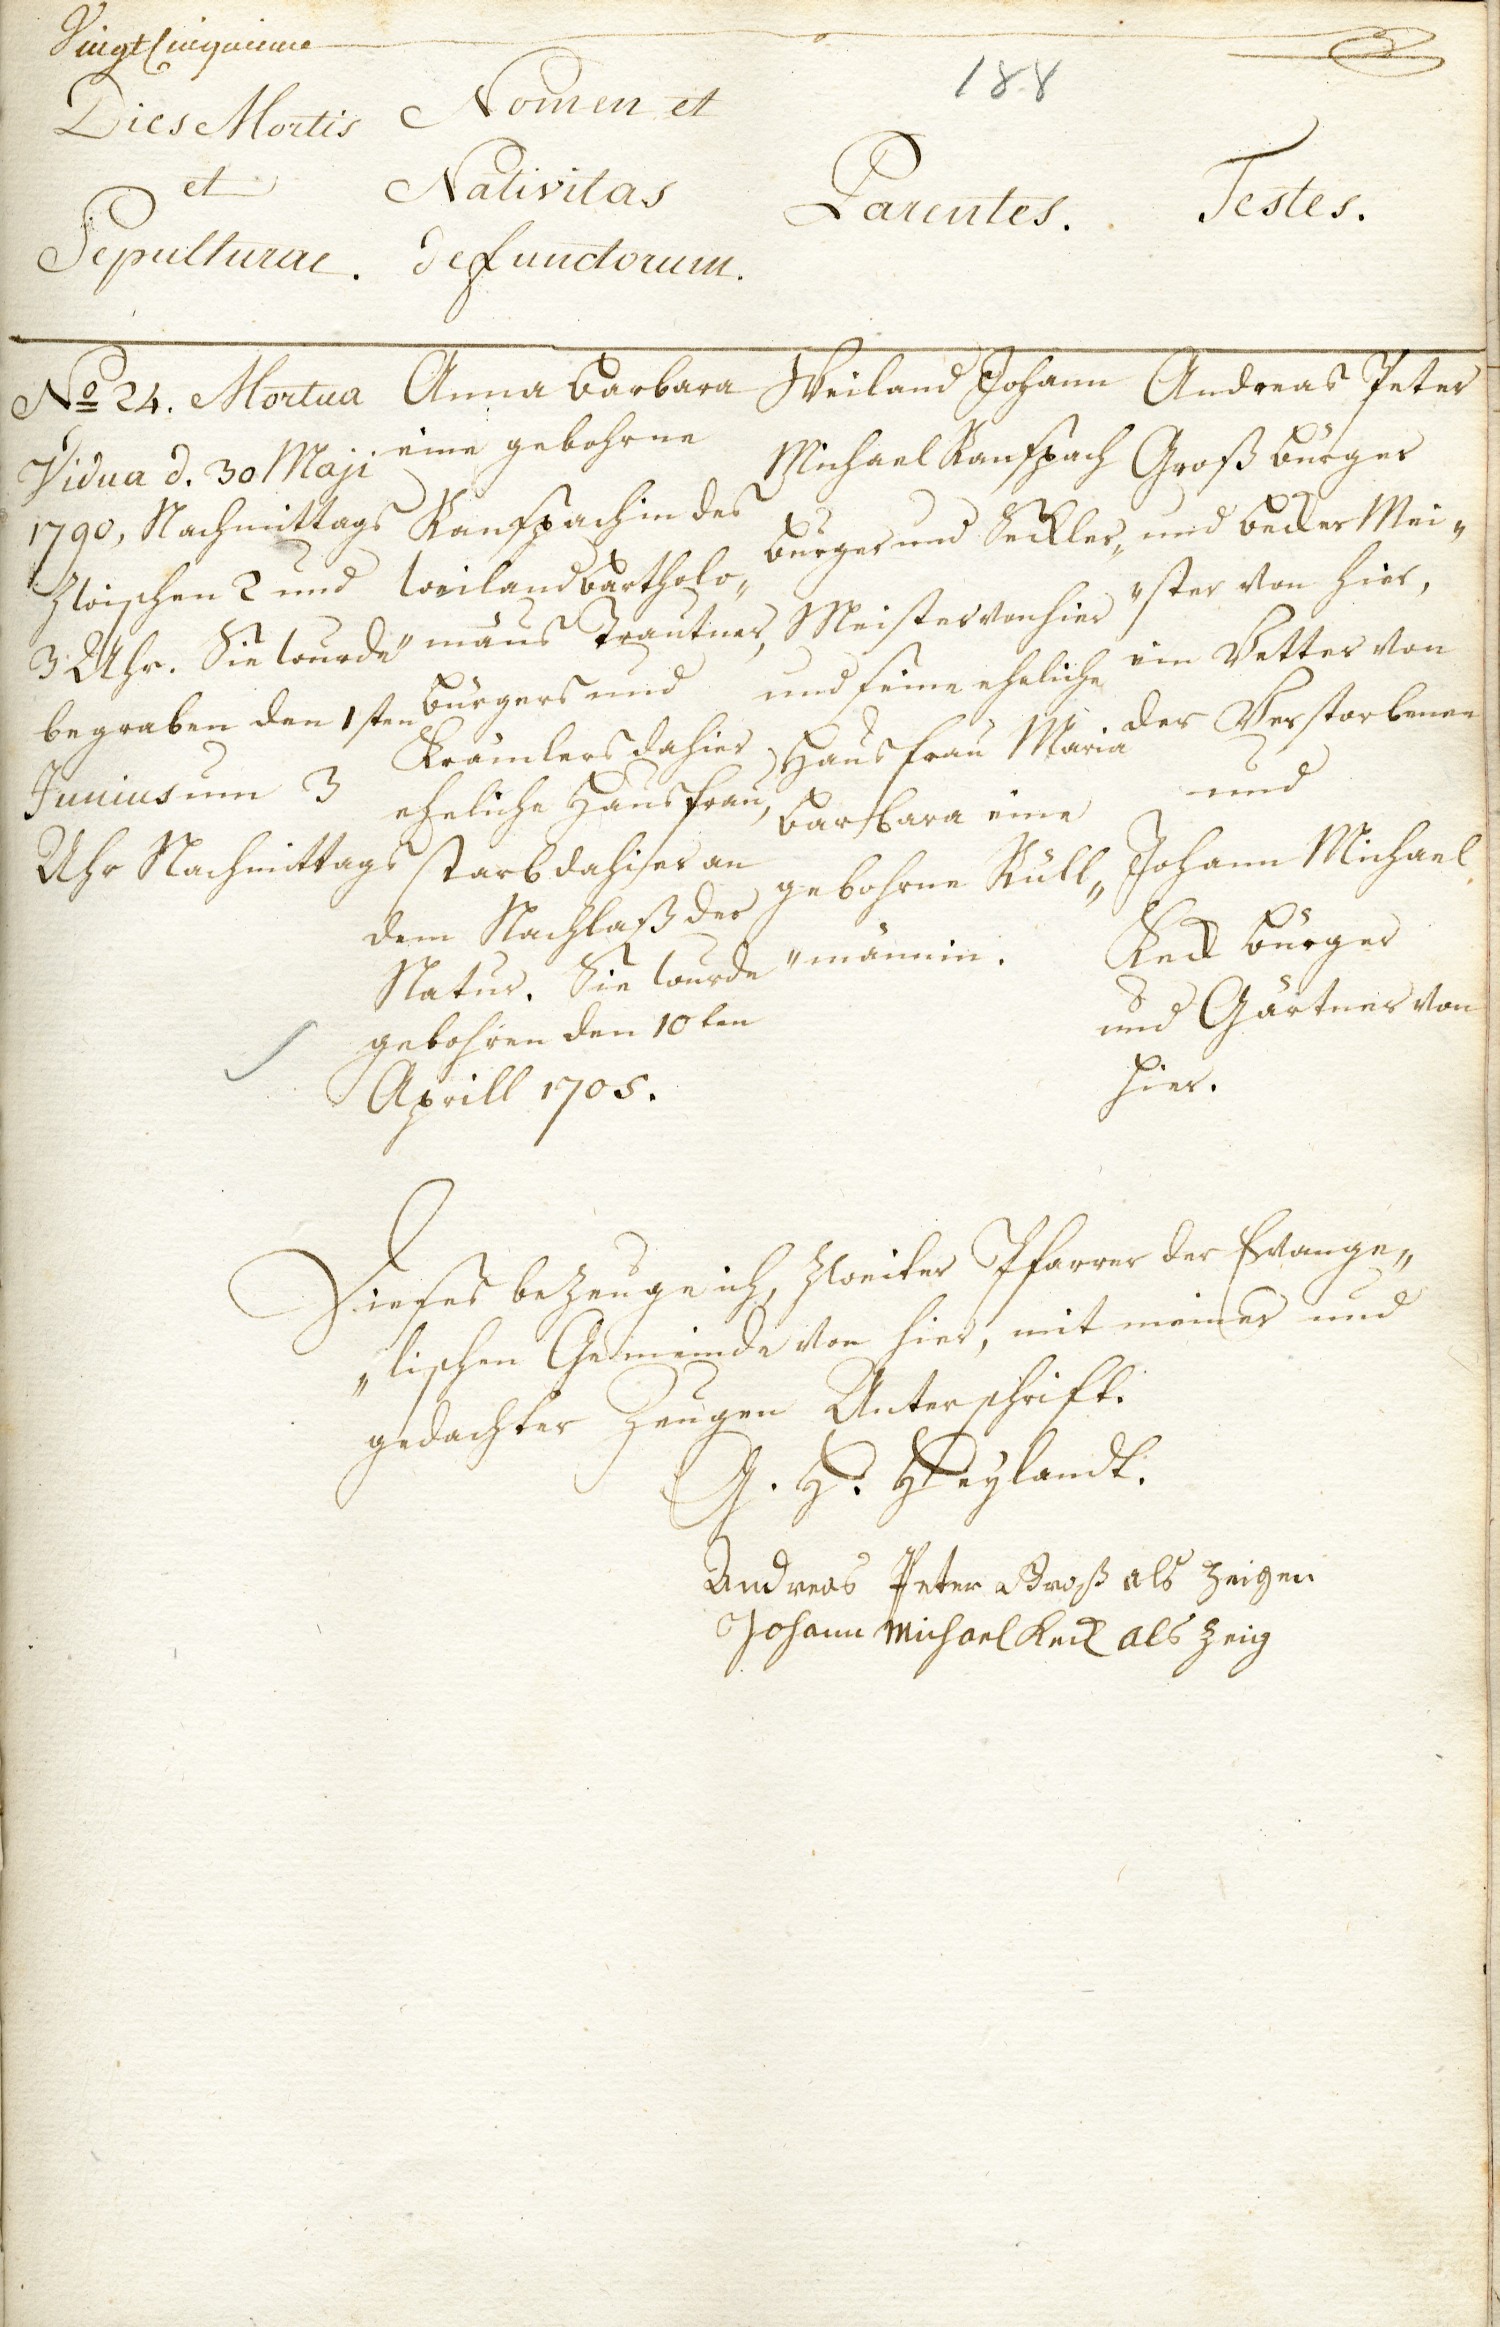 VingtCinquieme
188
Dies Mortis
et
Sepulturae.
Nomen et
Nativitas
defunctorum.
Parentes.
Testes.
No 24. Mortua
Vidua d. 30 Maji
1790, Nachmittags
zwischen 2 und
3 Uhr. Sie wurde
begraben den 1sten
Junius um 3
Uhr Nachmittags
Anna Barbara
eine gebohrne
Kanfpachin des
weiland Bartholo„
„mäus Trautner,
Bürgers und
Krämlers dahier
eheliche Hausfrau,
starb dahier an
dem Nachlaß der
Natur. Sie wurde
gebohren den 10ten
Aprill 1705.
Weiland Johann
Michael Kanfpach
Bürger und Seckler„
Meister von hier
und seine eheliche
Hausfrau Maria
Barbara eine
gebohrne Küll„
„männin.
Andreas Peter
Groß Bürger
und Becker Mei„
„ster von hier,
ein Vetter von
der Verstorbenen
und
Johann Michael
Keck Bürger
und Gärtner von
hier.
Dieses bezeuge ich, zweiter Pfarrer der Evange„
„lischen Gemeinde von hier, mit meiner und
gedachter Zeugen Unterschrift.
G. H. Heylandt.
Andreas Peter Groß als Zeigen
Johann Michael Keck als Zeig